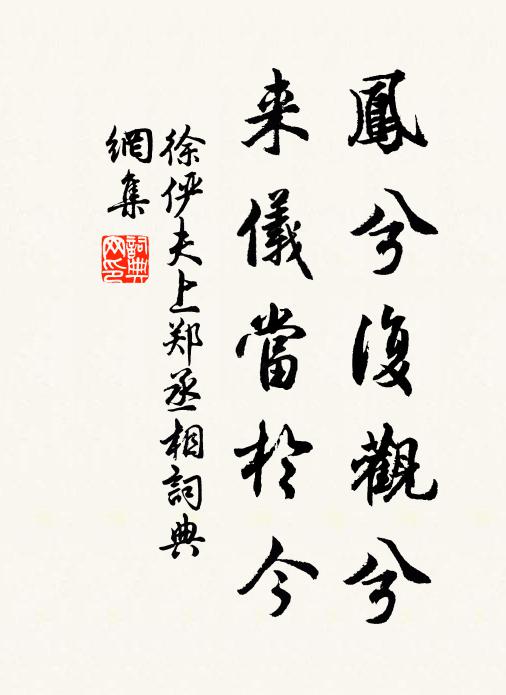 鳳兮復觀兮
来儀當於今
徐俨夫上郑丞相詞典
網集
詞典网印